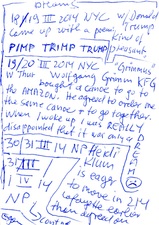 DREAMS
18/19 III 2014 NYC w/ Donald Trump
come up with a poem, kind of
PIMP TRIMP TRUMP
19/20 III 2014 NYC "Grimmus"
W Thur Wolfgang Grimm KFG
bought a canoe to go to
the AMAZON. He agreed to order one
the same canoe & to go together.
When I woke up I was REALLY
disappointed that it was only a
DREAM
30/31 III 14 NP Heidi
Klum
31/III
1 IV 14
NP
is eager
to move in 214
Lafayette earlier